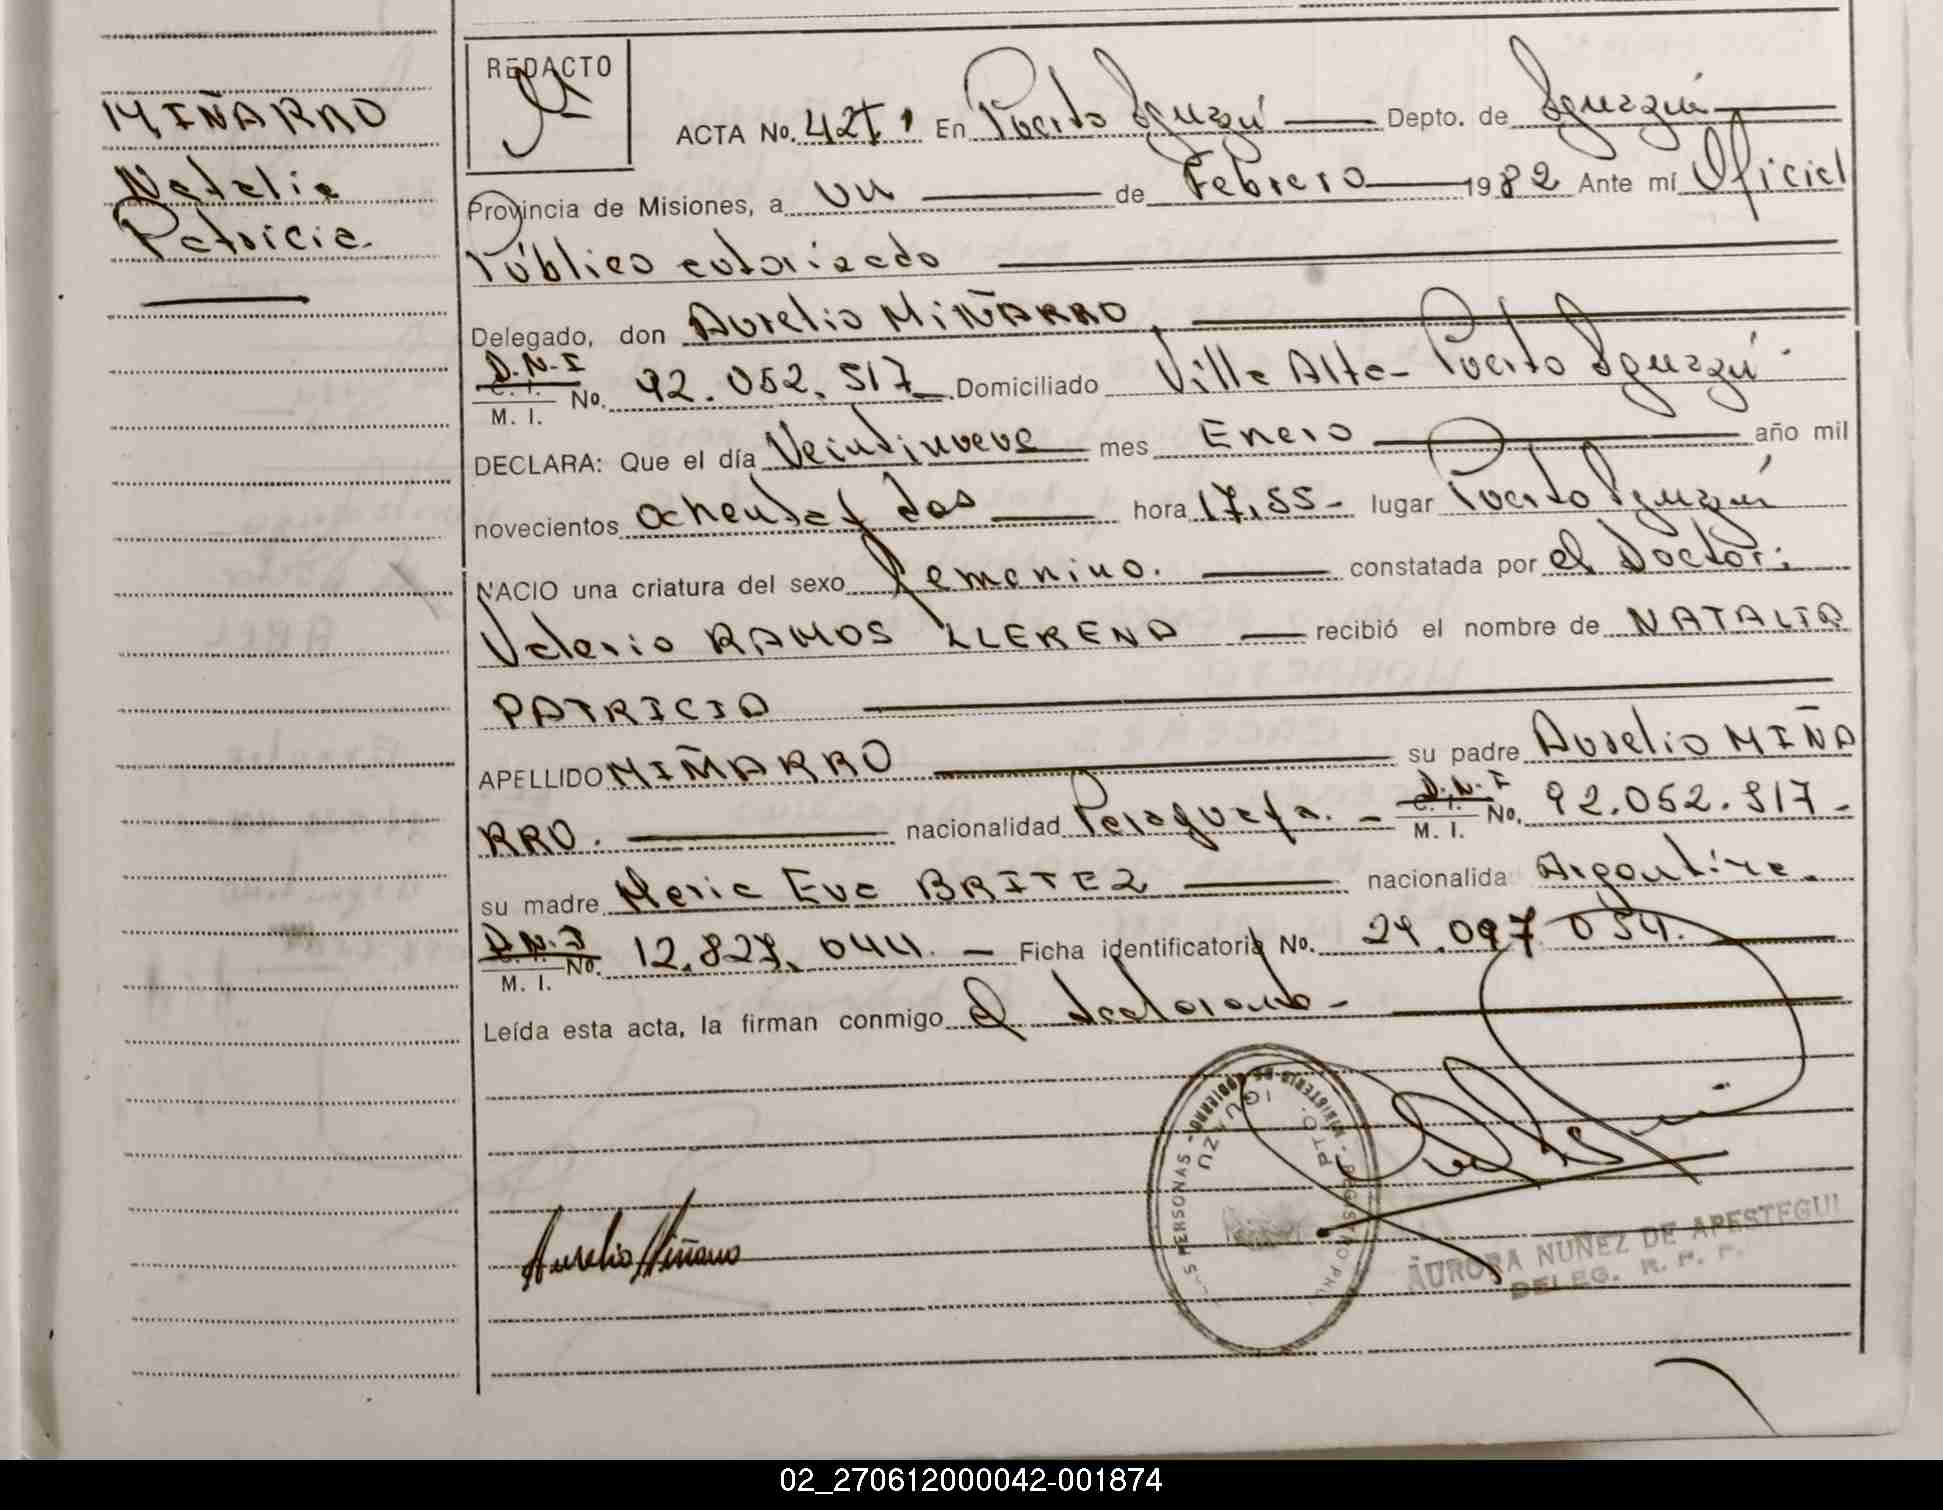 MIÑARRO
Natalia
Patricia.
REDACTO
ACTA No. 427, En Puerto Iguazú Depto. de Iguazú
Provincia de Misiones, a un de Febrero 1982 Ante mí Oficial
Público autorizado
Delegado, don Aurelio MIÑARRO,
D.N.I
C. I.
M. I. No. 92.052.517 Domiciliado Villa Alta - Puerto Iguazú.
DECLARA: Que el día Veintinueve mes Enero año mil
novecientos ochenta y dos hora 17,55- lugar Puerto Iguazú
NACIO una criatura del sexo femenino. constatada por el Doctor:
Valerio RAMOS LLERENA recibió el nombre de NATALIA
PATRICIA
APELLIDO MIÑARRO su padre Aurelio MIÑA
RRO. nacionalidad Paraguaya. - D.N.I C. I. M. I. No. 92.052.517-
su madre Maria Eva BRITEZ nacionalida Argentina.
D.N.I M. I. No. 12.827.044. - Ficha identificatoria No. 29.097.054.
Leída esta acta, la firman conmigo el declarante-
Aurelio Miñarro
MINISTERIO DE GOBIERNO - PERSONAS
PTO. IGUAZU
AURORA NUÑEZ DE APESTEGUI
DELEG. R. P. P.
02_270612000042-001874